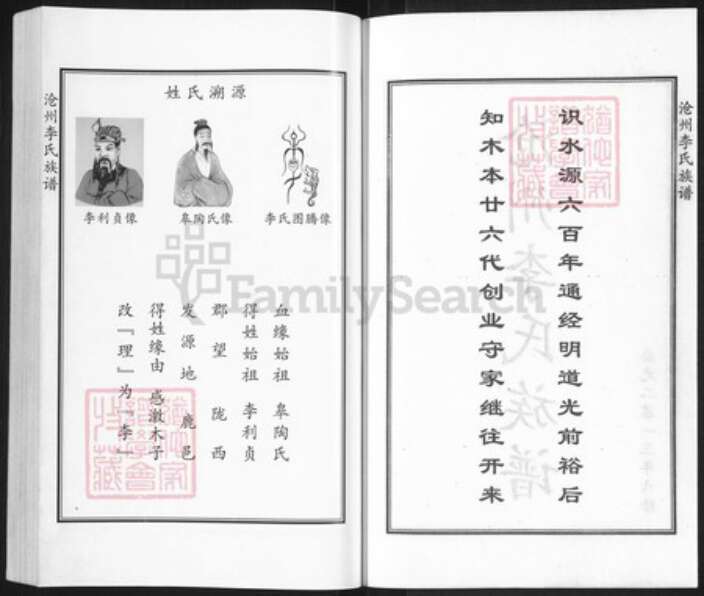 沧州李氏族谱
识水源六百年通经明道光前裕后
知木本廿六代创业守家继往开来
沧州李氏族谱
姓氏溯源
李氏图腾像
皋陶氏像
李利贞像
血缘始祖 皋陶氏
得姓始祖 李利贞
郡望 陇西
发源地 鹿邑
得姓缘由 感激木子
改『理』为『李』
FamilySearch